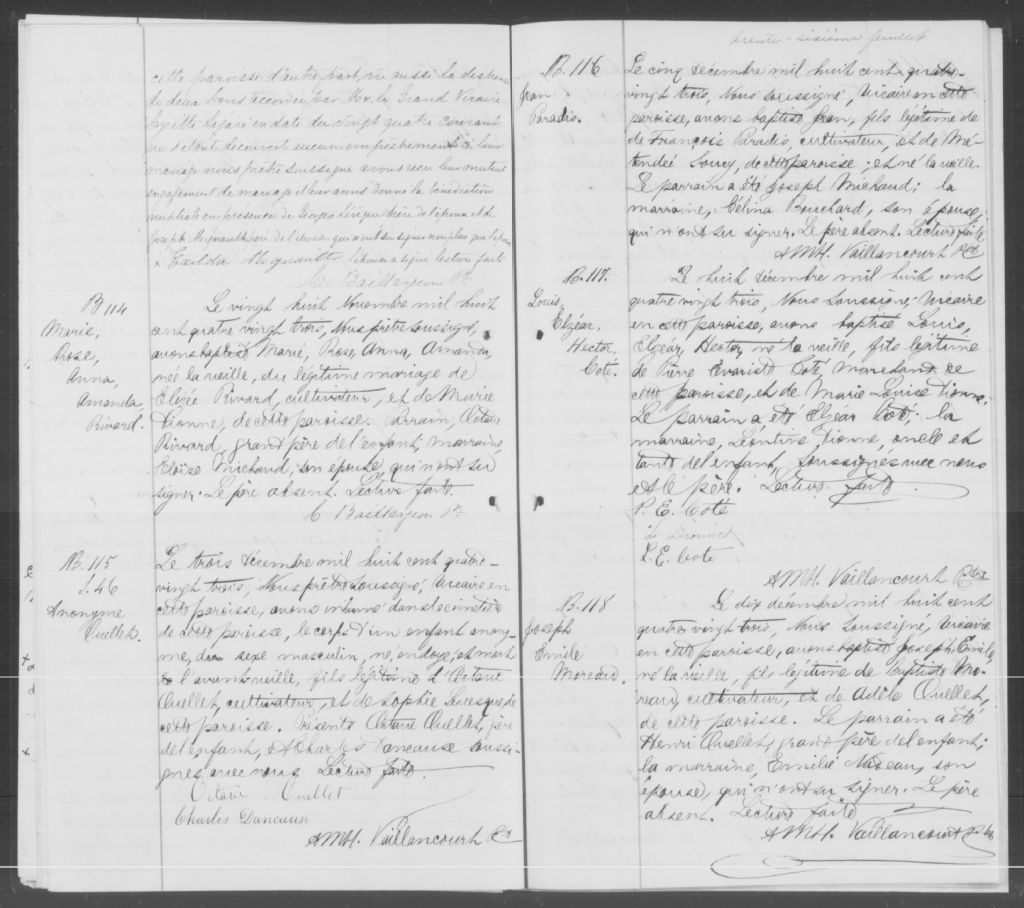 cette paroisse d'autre part, vu aussi la dispense
de deux bans accordée par Mr. le Grand Vicaire
en date du vingt quatre courant,
ne s'étant découvert aucun empêchement à leur
mariage nous prêtre soussigné avons reçu leur mutuel
engagement de mariage et leur avons donné la bénédiction
nuptiale en présence de Georges père de l'époux et de
Joseph père de l'épouse qui n'ont su signer non plus que l'époux
l'épouse a signé lecture faite
C. Baillargeon Ptr.
B 114
Marie,
Rose,
Anna,
Amanda
Rivard.
Le vingt huit Novembre mil huit
cent quatre vingt trois, Nous prêtre soussigné,
avons baptisé Marie, Rose, Anna, Amanda,
née la veille, du légitime mariage de
Elizée Rivard, cultivateur, et de Marie
Dionne, de cette paroisse. Parrain, Octave
Rivard, grand père de l'enfant, marraine
Eloïse Michaud, son épouse, qui n'ont su
signer. Le père absent. Lecture faite.
C. Baillargeon Ptr.
B. 115
S. 46
Anonyme
Ouellet.
Le trois décembre mil huit cent quatre-
vingt trois, Nous prêtre soussigné, vicaire en
cette paroisse, avons inhumé dans le cimetière
de cette paroisse, le corps d'un enfant anony-
me, du sexe masculin, né, ondoyé, et mort
l'avant veille, fils légitime d'Octave
Ouellet, cultivateur, et de Sophie Levesque, de
cette paroisse. Présents Octave Ouellet, père
de l'enfant, et Charles Dancause soussi-
gnés avec nous. Lecture faite.
Octave Ouellet
Charles Dancause
AMH. Vaillancourt Ptre
trente-sixième feuillet
B. 116
Jean
Paradis.
Le cinq décembre mil huit cent quatre-
vingt trois, Nous soussigné, vicaire en cette
paroisse, avons baptisé Jean, fils légitime de
de François Paradis, cultivateur, et de Ma-
Soucy, de cette paroisse; et né la veille.
Le parrain a été Joseph Michaud; la
marraine, Célina Bouchard, son épouse,
qui n'ont su signer. Le père absent. Lecture faite.
AMH. Vaillancourt Ptre
B. 117.
Louis,
Elzéar,
Hector,
Coté.
Le huit décembre mil huit cent
quatre vingt trois, Nous soussigné, vicaire
en cette paroisse, avons baptisé Louis,
Elzéar, Hector, né la veille, fils légitime
de Pierre Evariste Coté, marchand de
cette paroisse, et de Marie Louise Dionne.
Le parrain a été Elzéar Coté; la
marraine, Léontine Dionne, oncle et
tante de l'enfant, soussignés avec nous
et le père. Lecture faite.
P. E. Coté
L. E. Cote
AMH. Vaillancourt Ptre
B. 118
Joseph
Emile
Moreau.
Le dix décembre mil huit cent
quatre vingt trois, Nous soussigné, vicaire
en cette paroisse, avons baptisé Joseph, Emile,
né la veille, fils légitime de Baptiste Mo-
reau, cultivateur, et de Adèle Ouellet,
de cette paroisse. Le parrain a été
Henri Ouellet, grand père de l'enfant;
la marraine, Emilie Nadeau, son
épouse, qui n'ont su signer. Le père
absent. Lecture faite
AMH. Vaillancourt Ptre